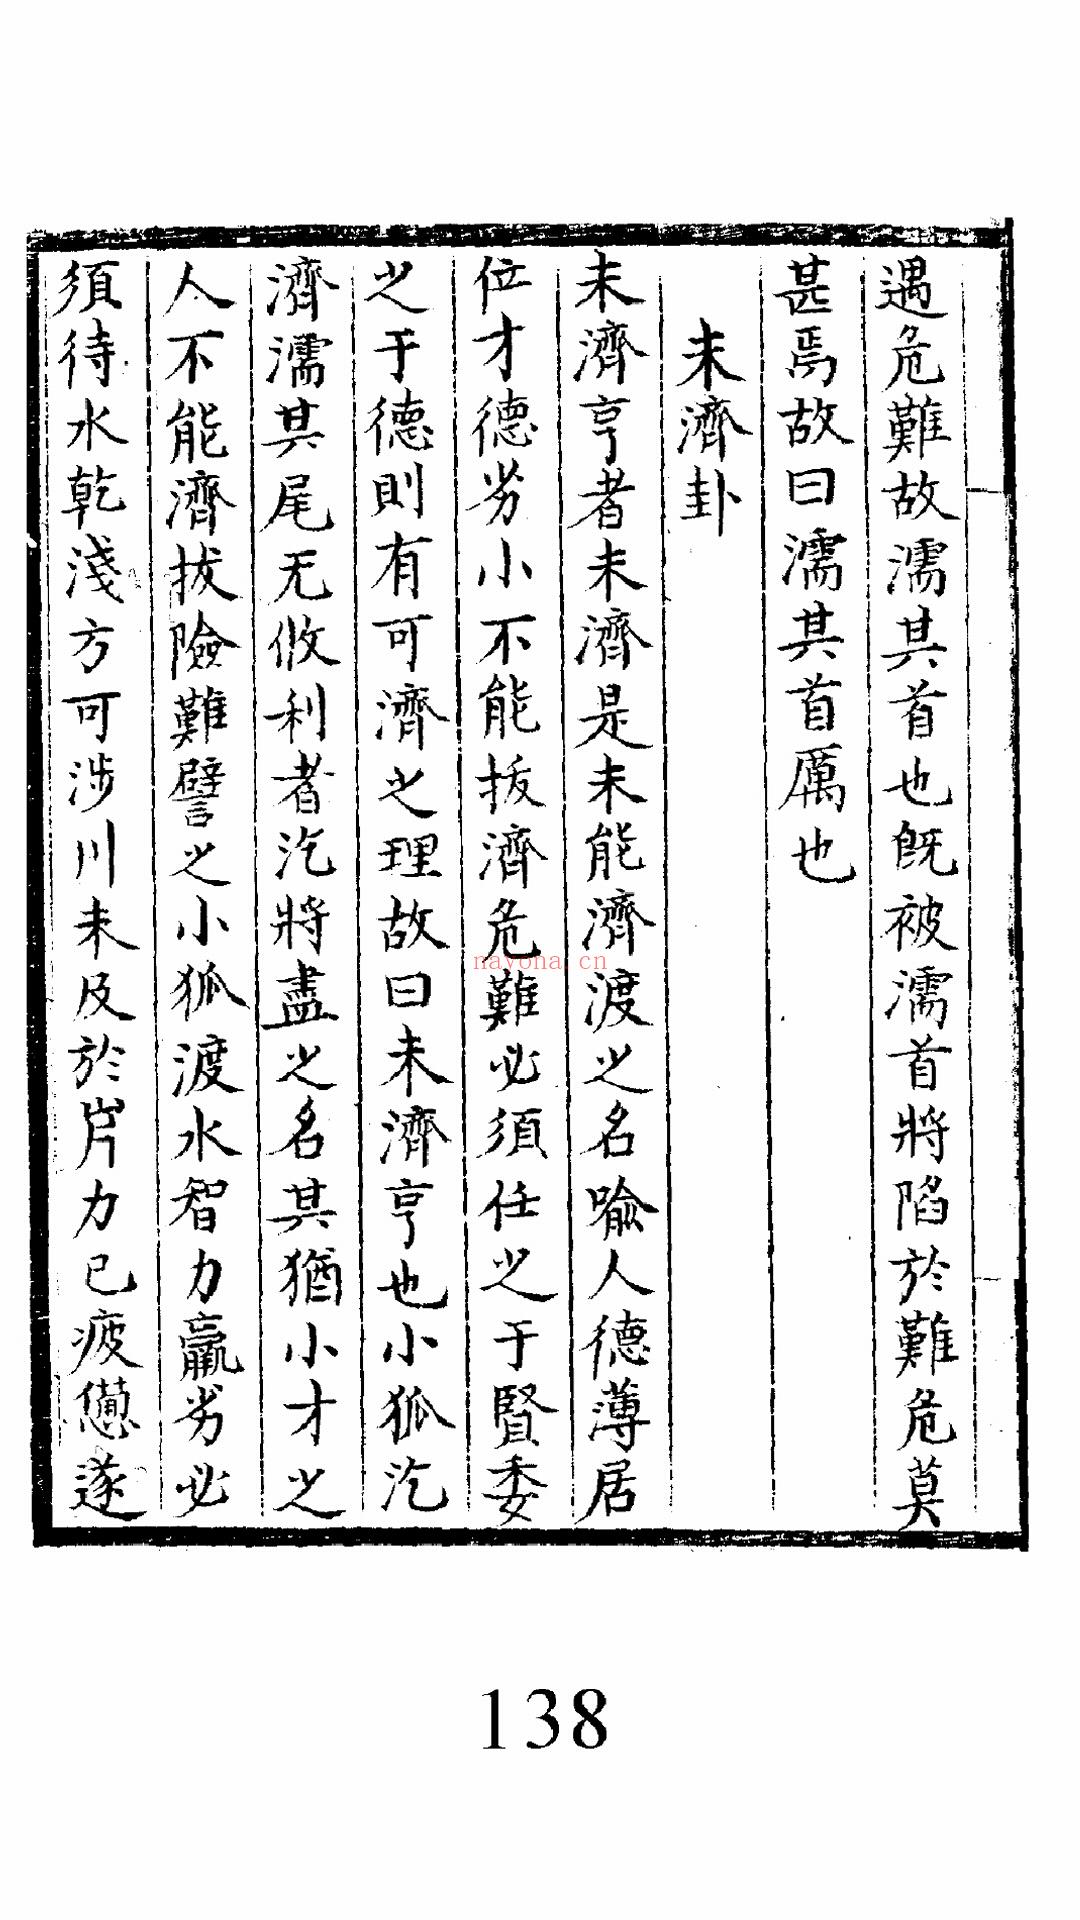 遇危難故濡其首也旣被濡首將陷於難危莫
甚焉故曰濡其首厲也
未濟卦
未濟亨者未濟是未能濟渡之名喻人德薄居
位才德劣小不能拔濟危難必須任之于賢委
之于德則有可濟之理故曰未濟亨也小狐汔
濟濡其尾无攸利者汔將盡之名其猶小才之
人不能濟拔險難譬之小狐渡水智力羸劣必
須待水乾淺方可涉川未及於岸力已疲憊遂
nayona.cn
138